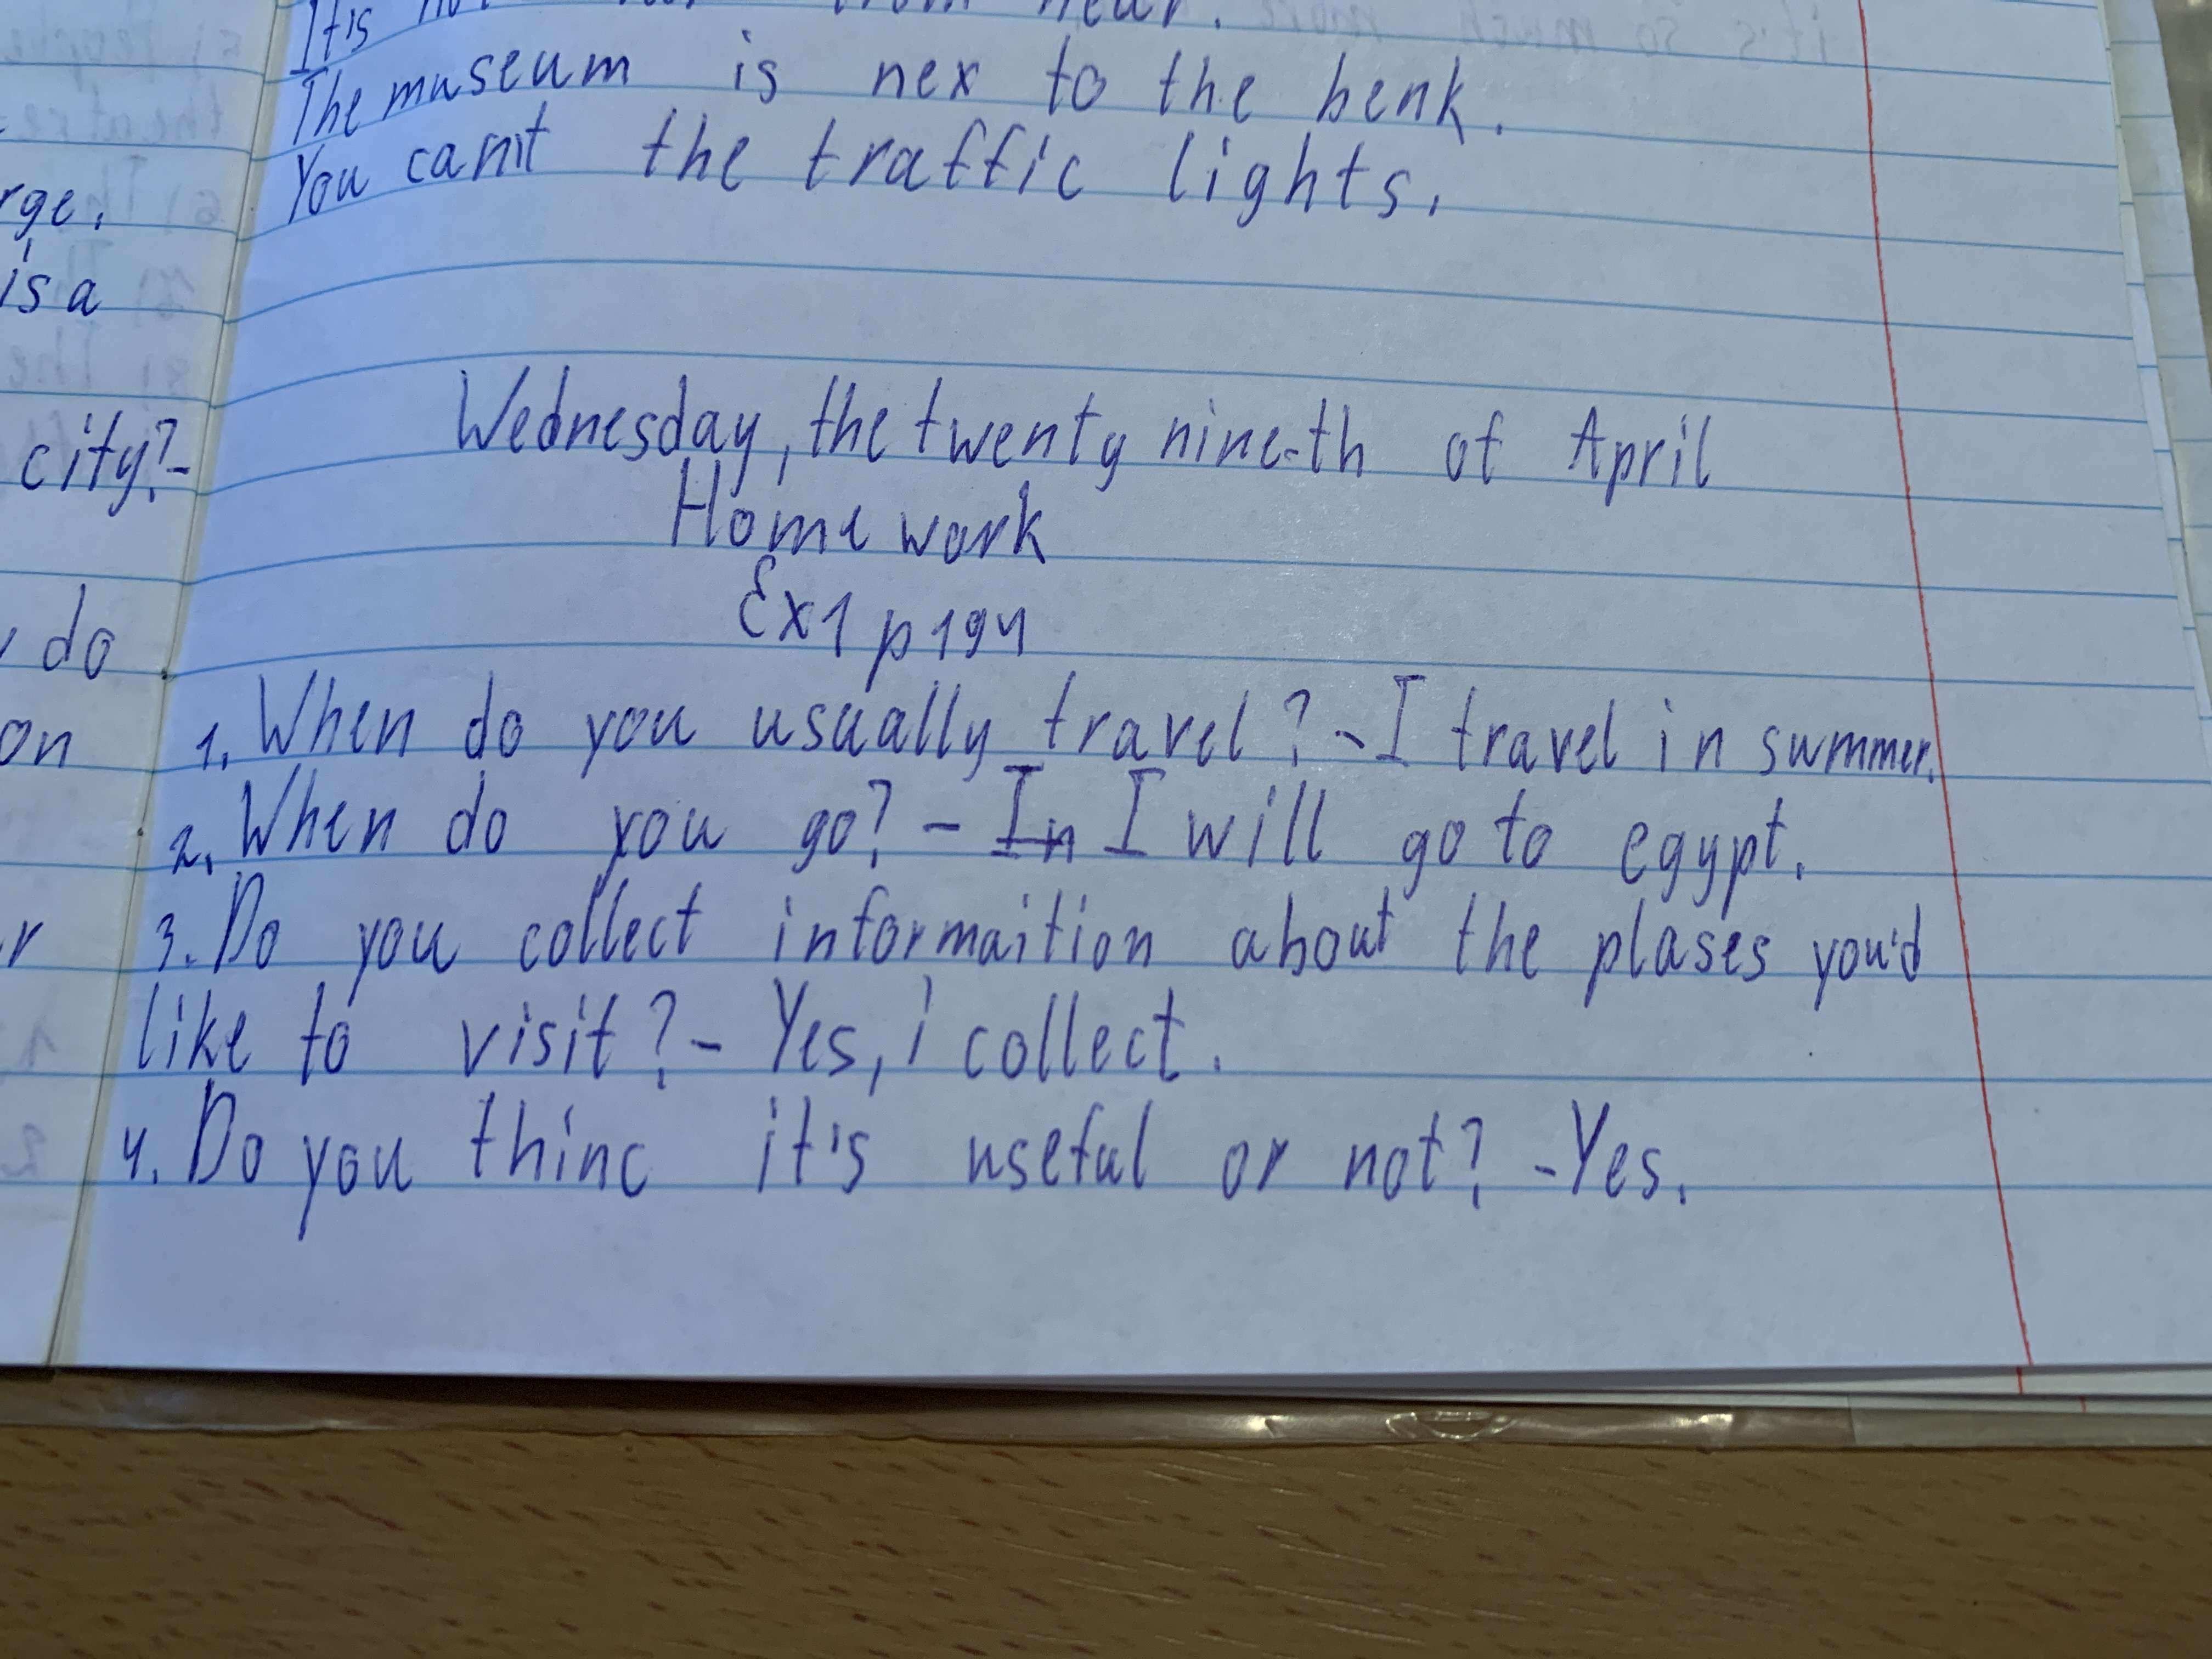 rge.
is a
city?-
do
on
r
It's from near.
The museum is nex to the benk.
You can't the traffic lights.
Wednesday, the twenty nine-th of April
Home work
Ex1 p194
1. When do you usually travel? - I travel in summer.
2. When do you go? - In I will go to egypt.
3. Do you collect informaition about the plases you'd
like to visit? - Yes, i collect.
4. Do you thinc it's useful or not? - Yes.